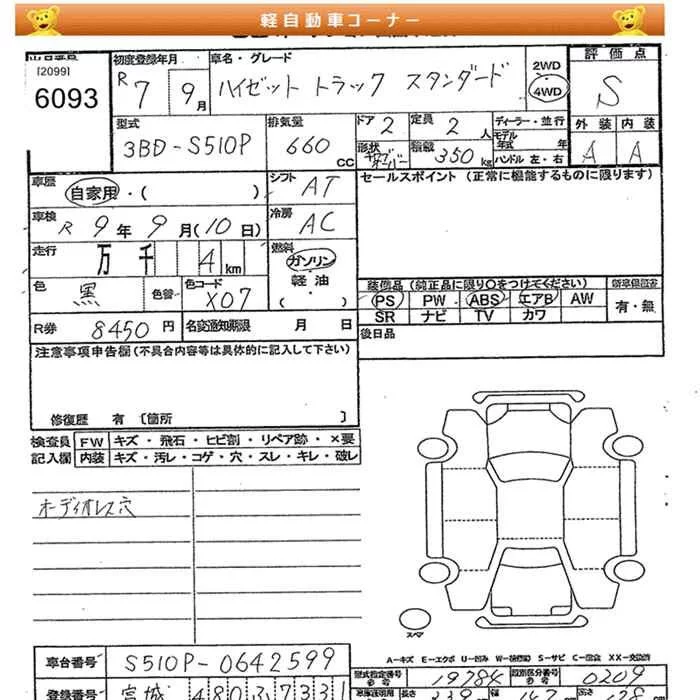 軽自動車コーナー
[2099]
6093
初度登録年月
R7 9月
車名・グレード
ハイゼット トラック スタンダード
2WD
4WD
評価点
S
型式
3BD-S510P
排気量
660 CC
ドア 2
定員 2 人
形状
積載 350 kg
ディーラー・並行
モデル年式 年
ハンドル 左・右
外装 内装
A A
車歴
自家用・( )
シフト AT
セールスポイント (正常に機能するものに限ります)
車検
R 9年 9月(10日)
冷房 AC
走行
万 千 4 km
燃料
ガソリン
軽油
・( )
色 黒
色替
色コード X07
装備品(純正品に限り○をつけてください)
PS PW ABS エアB AW
SR ナビ TV カワ
新車保証書
有・無
R券 8450円
名変通知期限 月 日
後日品
注意事項申告欄(不具合内容等は具体的に記入して下さい)
修復歴 有 〔箇所 〕
検査員 FW キズ・飛石・ヒビ割・リペア跡・×要
記入欄 内装 キズ・汚レ・コゲ・穴・スレ・キレ・破レ
オーディオレス穴
スペア
A-キズ E-エクボ U-凹み W-補修跡 S-サビ C-腐食 XX-交換済
車台番号 S510P-0642599
型式指定番号 19784
類別区分番号 0209
登録番号 宮城 480 ふ 7331
長さ 339
幅 147
高さ 178